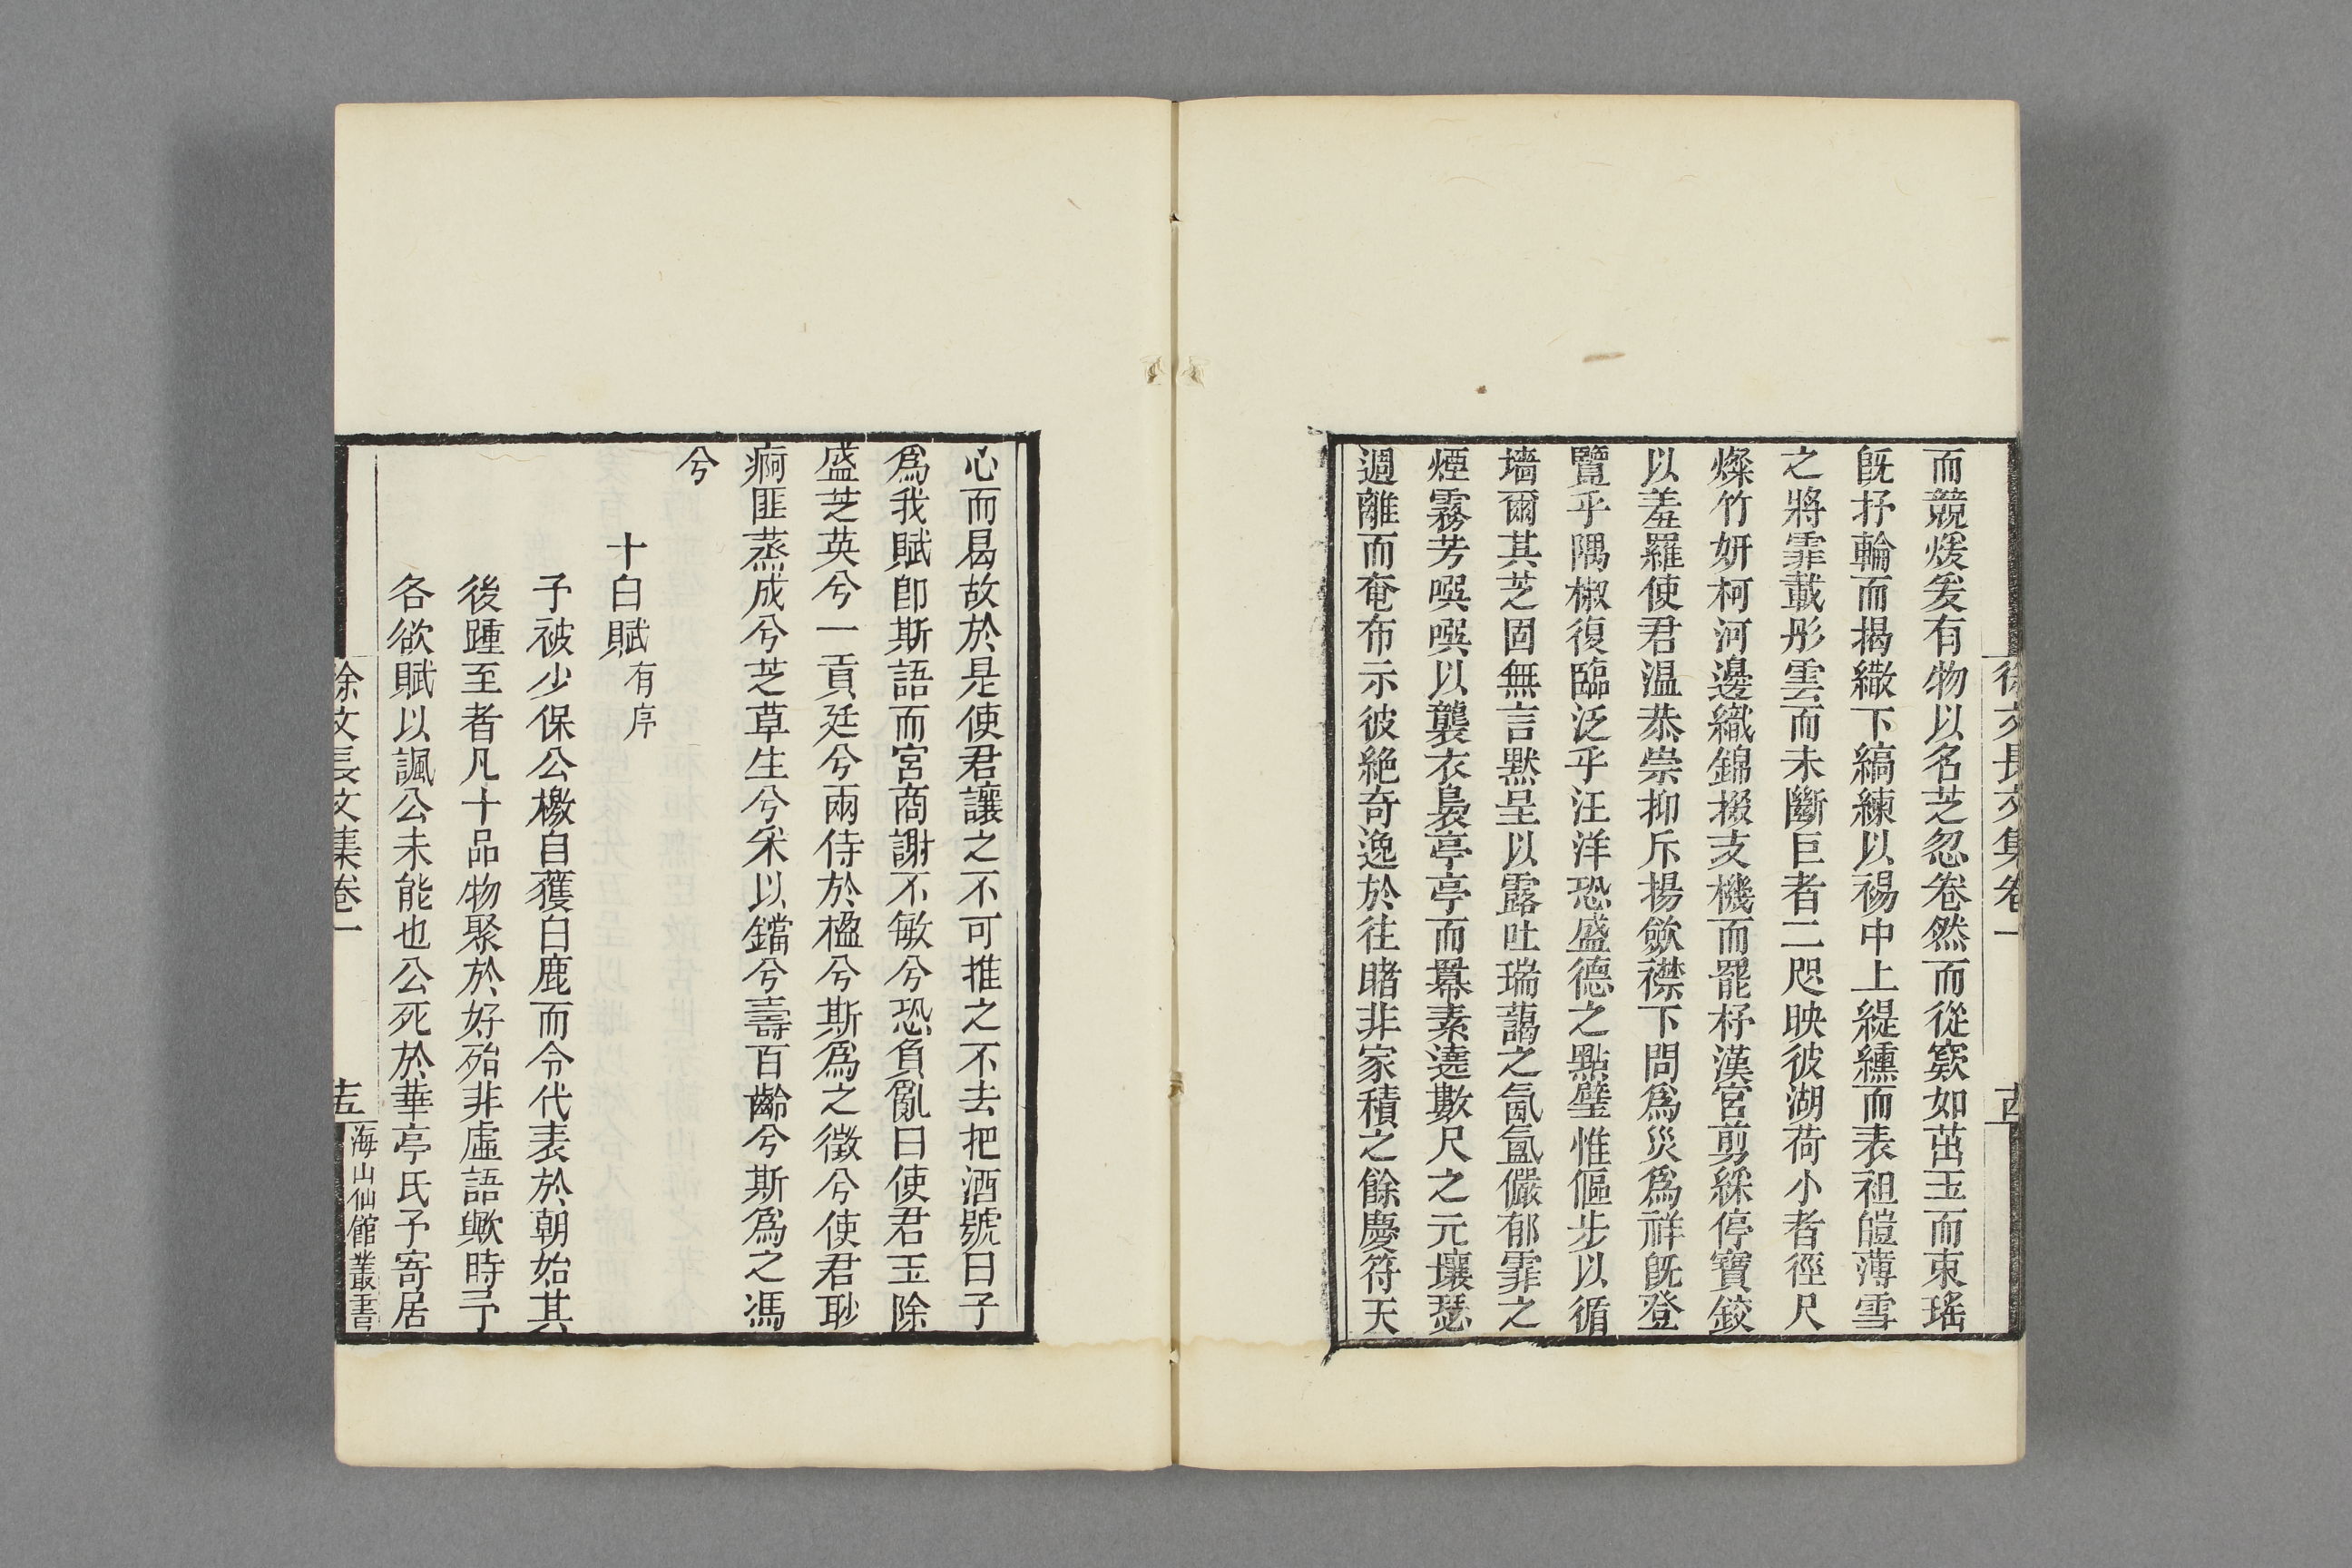 徐文長文集卷一
而競煖爰有物以名芝忽卷然而從窽如茁玉而束瑤
旣抒輪而揭繖下縞練以裼中上緹纁而表袒皚薄雪
之將霏載彤雲而未斷巨者二咫映彼湖荷小者徑尺
燦竹妍柯河邊織錦掇支機而罷杼漢宮剪綵停寶鉸
以羞羅使君温恭崇抑斥揚歛襟下問爲災爲祥旣登
覽乎隅椒復臨泛乎汪洋恐盛德之點璧惟傴步以循
墻爾其芝固無言黙呈以露吐瑞藹之氤氳儼郁霏之
煙霧芳噀噀以襲衣裊亭亭而羃素遶數尺之元壤瑟
週離而奄布示彼絶奇逸於往睹非家積之餘慶符天
心而曷故於是使君讓之不可推之不去把酒號曰子
爲我賦卽斯語而宮商謝不敏兮恐負亂曰使君玉除
盛芝英兮一貢廷兮兩侍於楹兮斯爲之徵兮使君耏
痾匪蒸成兮芝草生兮采以鐺兮壽百齡兮斯爲之馮
兮
十白賦有序
予被少保公檄自獲白鹿而令代表於朝始其
後踵至者凡十品物聚於好殆非虛語歟時予
各欲賦以諷公未能也公死於華亭氏予寄居
徐文長文集卷一
十五
海山仙館叢書